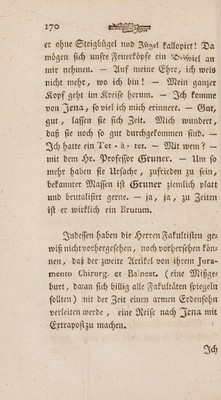 170
er ohne Steigbügel und Zügel kallopirt! Da
mögen sich unsre Feuerköpfe ein Beispiel an
mir nehmen. — Auf meine Ehre, ich weis
nicht mehr, wo ich bin! — Mein ganzer
Kopf geht im Kreise herum. — Ich komme
von Jena, so viel ich mich erinnere. — Gut,
gut, lassen sie sich Zeit. Mich wundert,
daß sie noch so gut durchgekommen sind. —
Ich hatte ein Tet-à-tet. — Mit wem? —
mit dem Hr. Professor Gruner. — Um so
mehr haben sie Ursache, zufrieden zu sein,
bekannter Massen ist Gruner ziemlich platt
und brutalisirt gerne. — ja, ja, zu Zeiten
ist er wirklich ein Brutum.
Indessen haben die Herren Fakultisten ge-
wiß nicht vorhergesehen, noch vorhersehen kön-
nen, daß der zweite Artikel von ihrem Jura-
mento Chirurg. et Balneat. (eine Mißge-
burt, daran sich billig alle Fakultäten spiegeln
sollten) mit der Zeit einen armen Erdensohn
verleiten werde, eine Reise nach Jena mit
Extrapost zu machen.
Ich